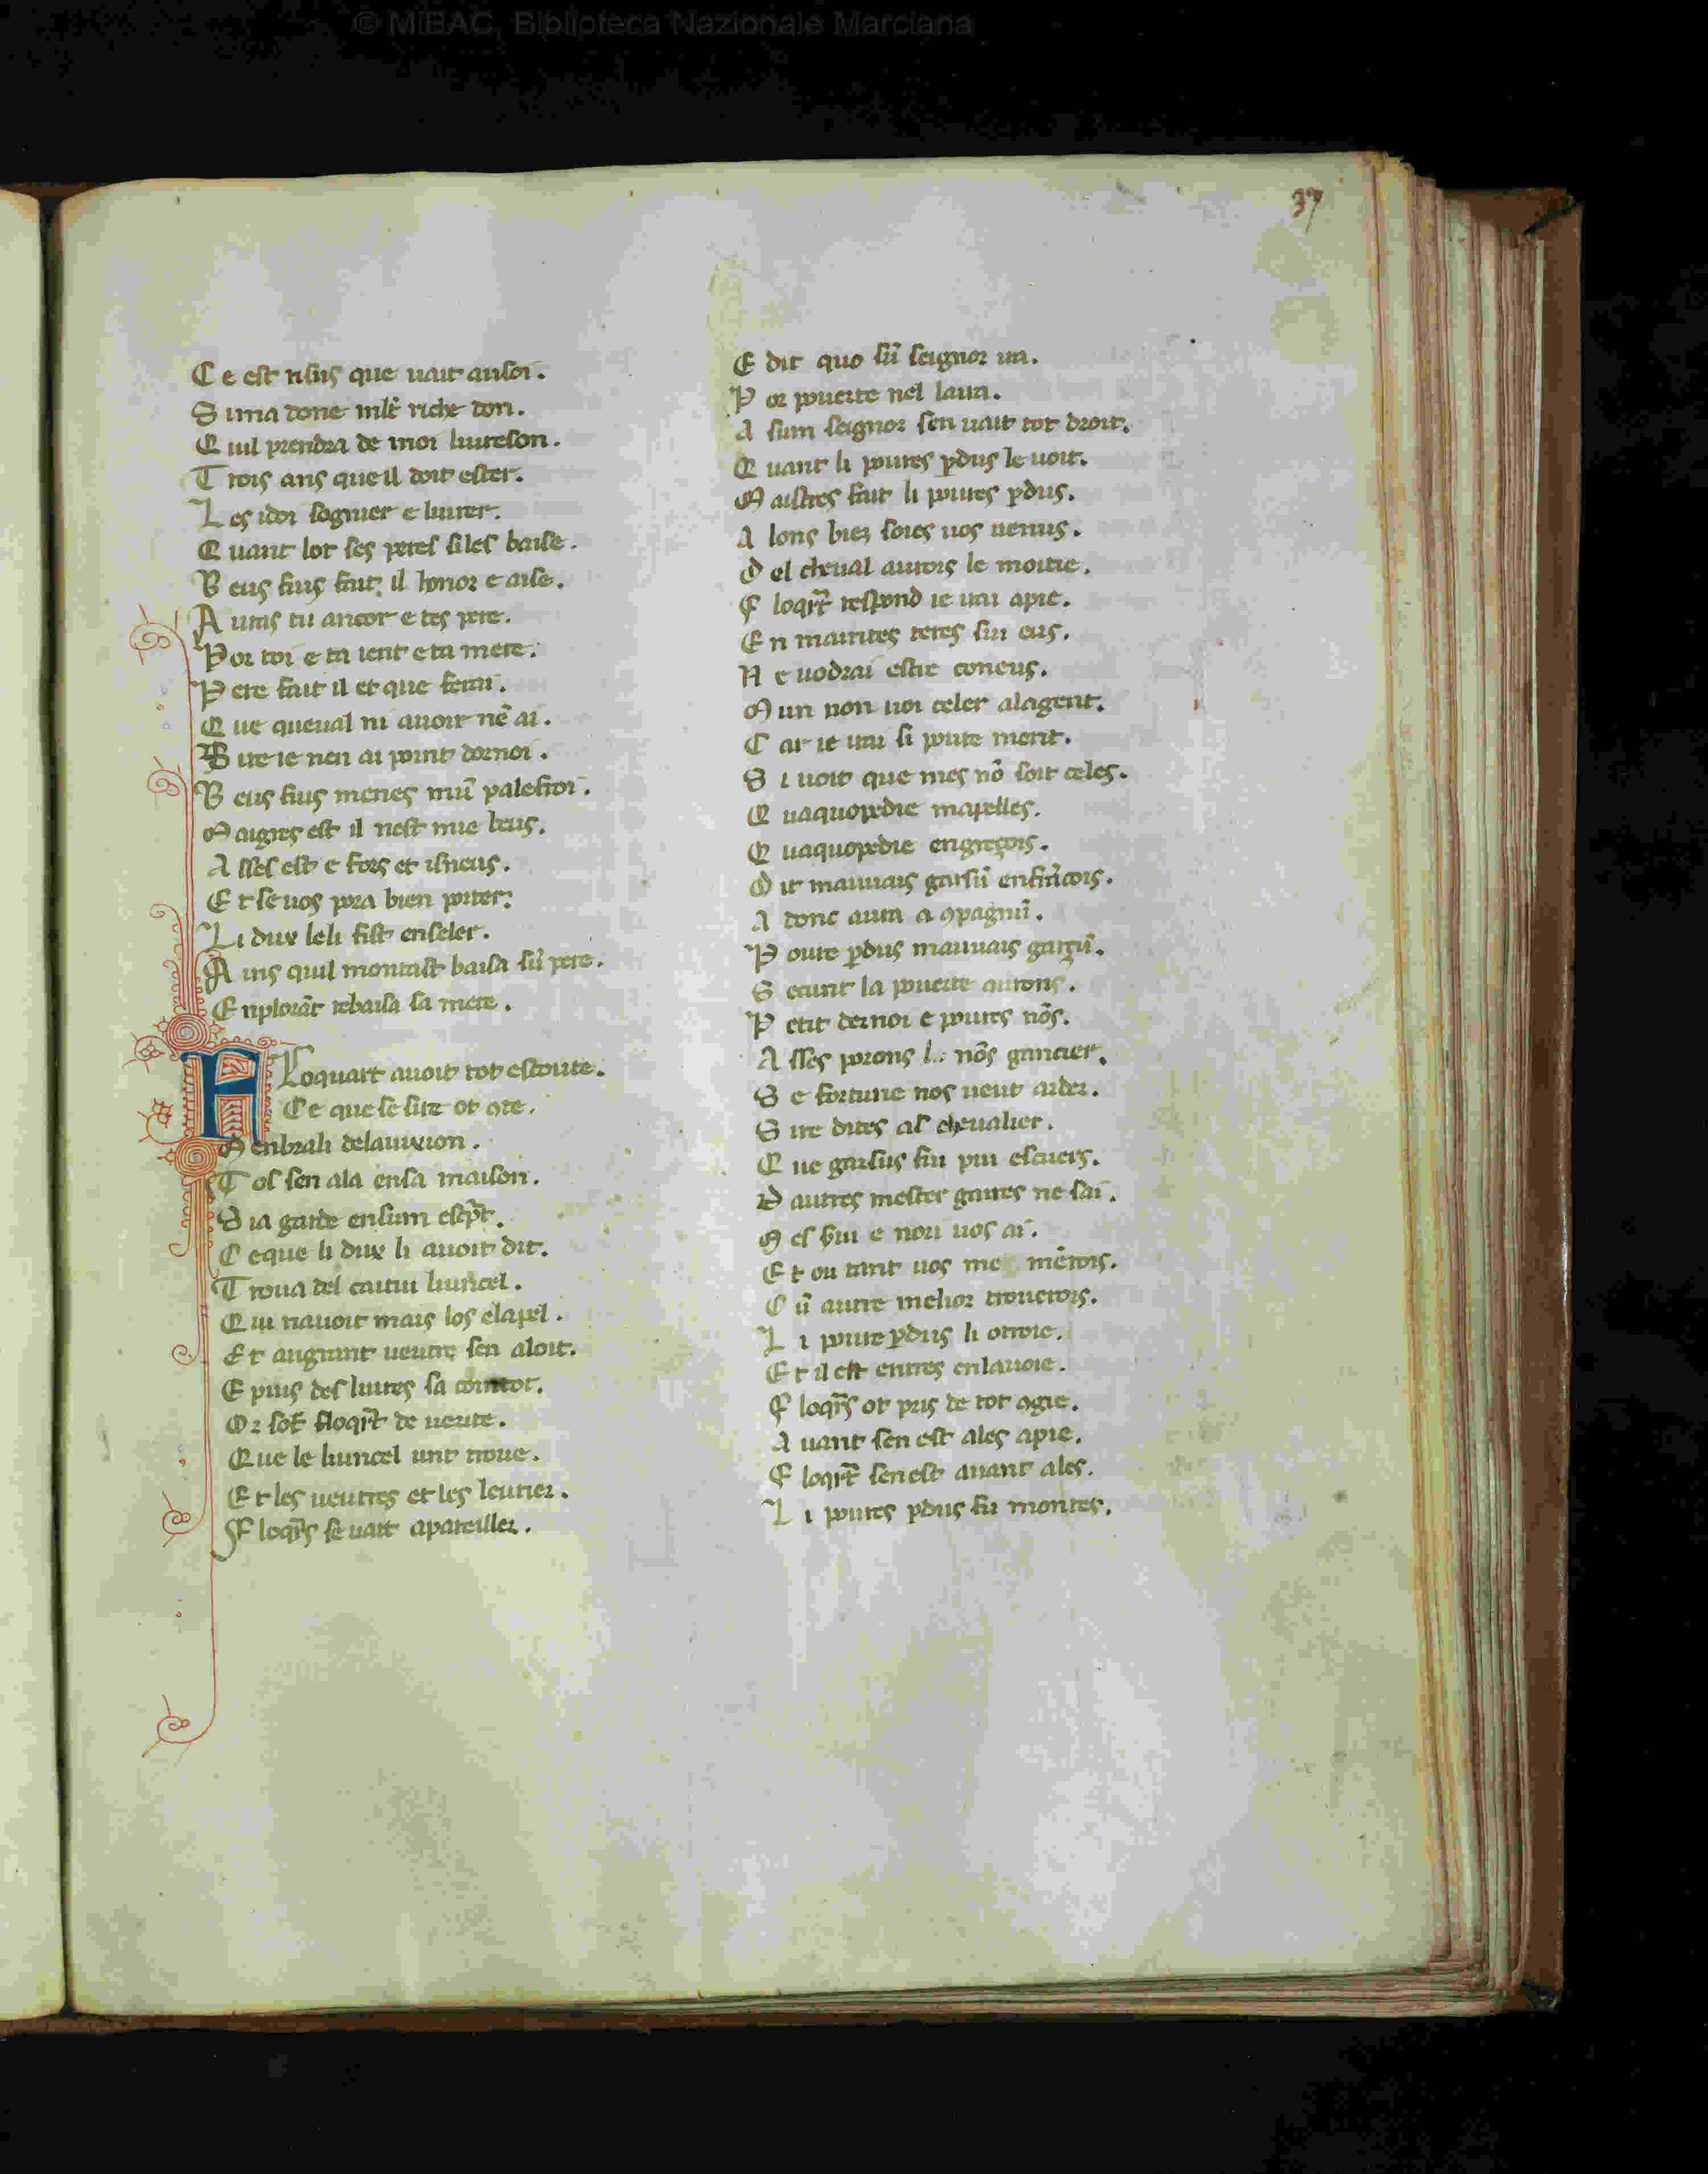 © MiBAC, Biblioteca Nazionale Marciana
37
C e est risus que uait ausoi.
S i ma done mlt riche don.
Q uil prendra de moi liureson.
T rois ans que il doit ester.
L es idoi sognier e liurer.
Q uant lot ses peres siles baise.
B eus fius fait il honor e aise.
A uras tu ancor e tes pere.
P or toi e ta ient e ta mere.
P ere fait il et que ferai.
Q ue queual ni auoir nē ai.
S ire ie nen ai point dornoi.
B eus fius menes mū palefroi.
M aigres est il nest mie beus.
A sses est e fors et isneus.
E t se uos pora bien porter.
L i dux leli fist enseler.
A ins quil montast baisa sū pere.
E nplorāt rebaisa sa mere.
F loquart auoit tot escoute.
C e que le sire ot 9te.
M enbrali delauixion.
T ost sen ala ensa maison.
S i a garde ensum escp̄t.
C eque li dux li auoit dit.
T roua del caitiu liuricel.
Q ui nauoit mais los e la pel.
E t augrant ueutre sen aloit.
E puis des liures sa
O r sot floqr̄t de uerite.
Q ue le liuricel unt troue.
E t les ueutres et les leurier.
F loqr̄s se uait apareiller.
E dit quo sū seignor ua.
P or pouerte nel laira.
A sum seignor sen uait tot droit.
Q uant li poures p̄dus le uoit.
M aistres fait li poures p̄dus.
A lons biez soies uos uenus.
D el cheual aurois le moitie.
F loqr̄t respond ie uai a pie.
E n maintes teres sui eus.
N e uodrai estre coneus.
M un non uoi celer alagent.
C ar ie uai si poure ment.
S i uoit que mes nō soit celes.
Q uaquopedie mapelles.
Q uaquopedie engreçois.
D it mauuais garsū enfrācois.
A donc aura a 9pagnū.
P oure p̄dus mauuais garçū.
S ecunt la pouerte aurons.
P etit dernoi e poures nōs.
A sses porons nōs gancier.
S e fortune nos ueut aider.
S ire dites al cheualier.
Q ue garsus sui pui escuers.
D autres mester gaires ne sai.
M el sui e non uos ai.
E t ou tant uos me mērois.
C ū autre melior trouerois.
L i poure p̄dus li otroie.
E t il est entres enlauoie.
F loqr̄s ot pris de tot 9gie.
A uant sen est ales a pie.
F loqr̄t sen est auant ales.
L i poures p̄dus fu montes.